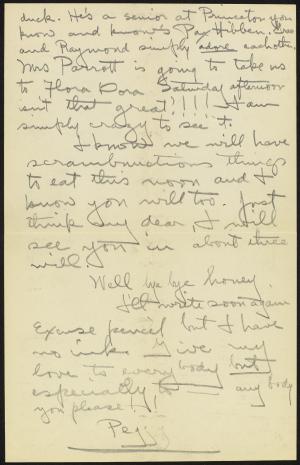 duck. He's a senior at Princeton you
know and knows Pax Hibben.
and Raymond simply adore eachother.
Mrs Parrott is going to take us
to Flora Dora Saturday afternoon
isn't that great!!!! I am
simply crazy to see it.
I know we will have
scrambunctious things
to eat this noon and I
know you will too. Just
think my dear, I will
see you in about three
will.
Well bye bye honey.
I'll write soon again
Excuse pencil but I have
no ink. Give my
love to everybody but
especially any body
you please!!
Peg.